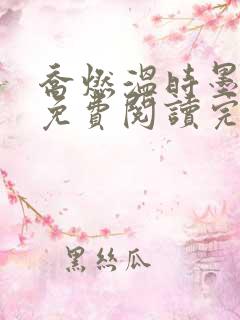 喬燃溫時墨
免費閱讀完
黑絲瓜